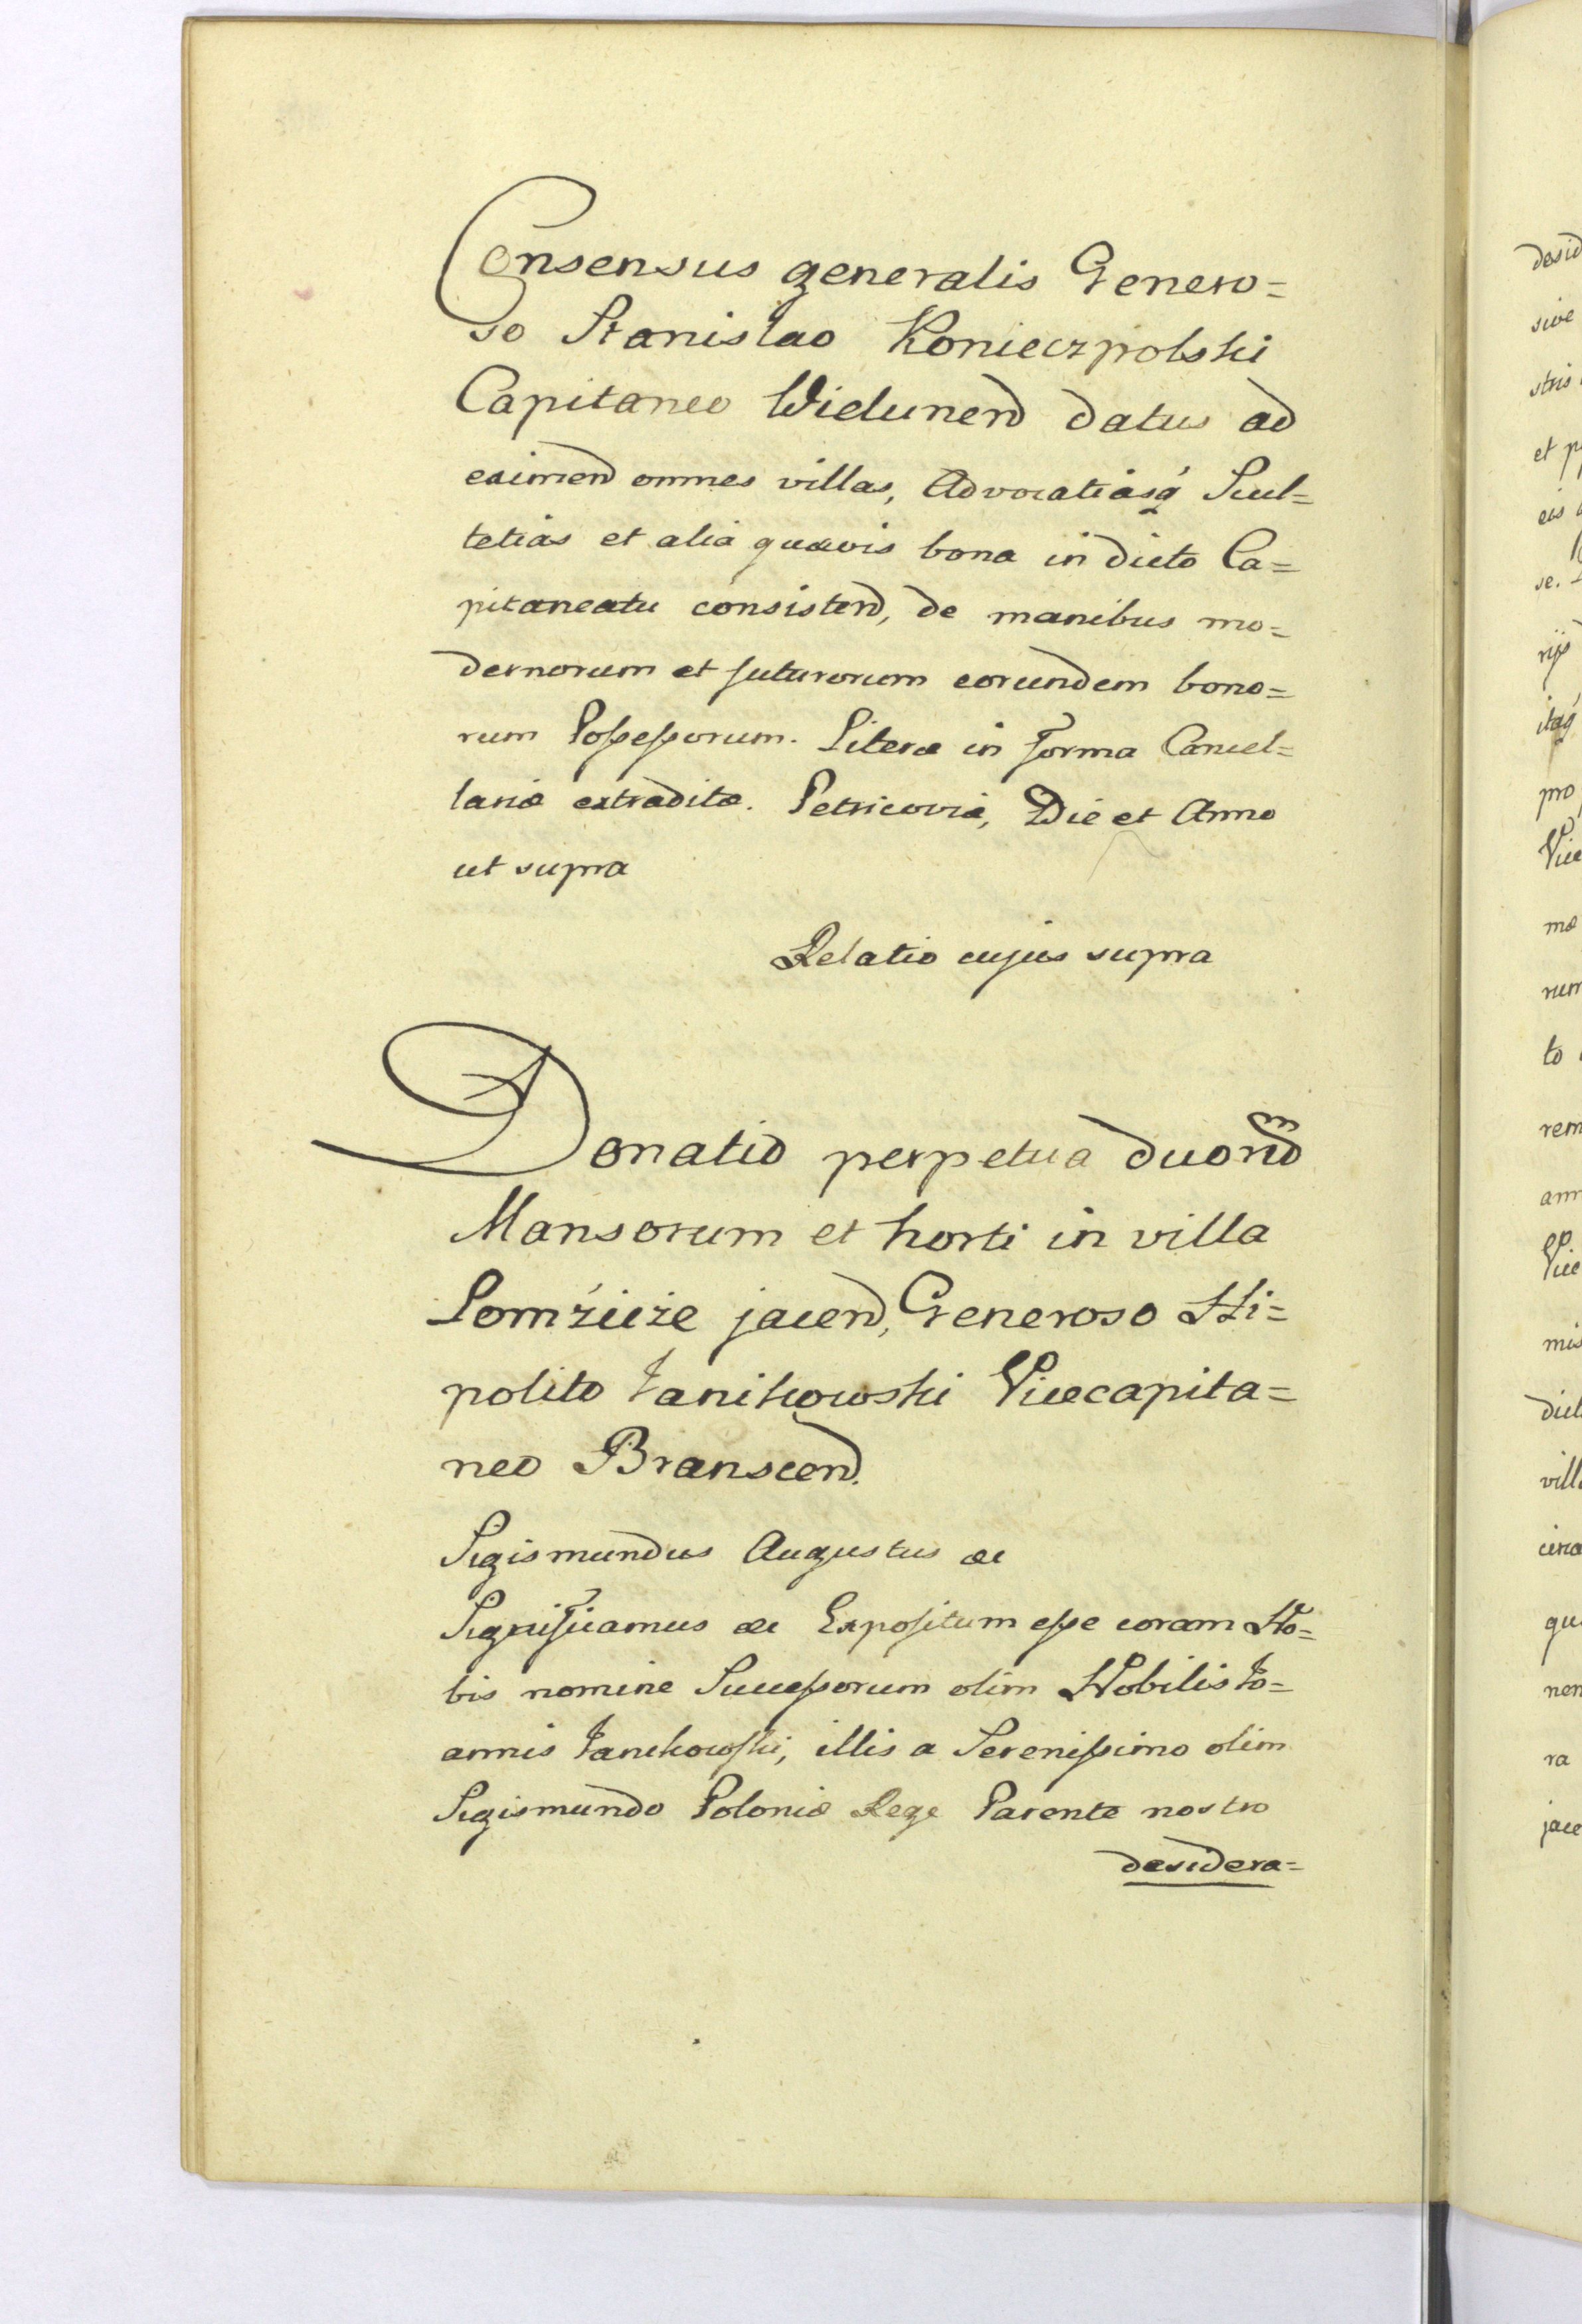 Consensus generalis Genero=
so Stanislao Koniecpolski
Capitaneo Wielunen̄ datus ad
eximen̄ omnes villas, Advocatiasq́ Scul=
tetias et alia quævis bona in dicto Ca=
pitaneatu consisten̄, de manibus mo=
dernorum et futurorum eorundem bono=
rum Possessorum. Literæ in forma Cancel=
lariæ extraditæ. Petricoviæ, Die et Anno
ut supra
Relatio cujus supra
Donatio perpetua duorum
Mansorum et horti in villa
jacen̄, Generoso Hi=
polito Janikowski Vicecapita=
neo Branscen̄.
Sigismundus Augustus &c
Significamus &c Expositum esse coram No=
bis nomine Successorum olim Nobilis Jo=
annis Janikowski, illis a Serenissimo olim
Sigismundo Poloniæ Rege Parente nostro
desidera=
desid
sive
stris
et p
eis
se.
rijs
itaq́
pro
Vice
mæ
rum
to
rem
ann
Vice
mis
dict
vill
circa
qu
nen
ra
jace